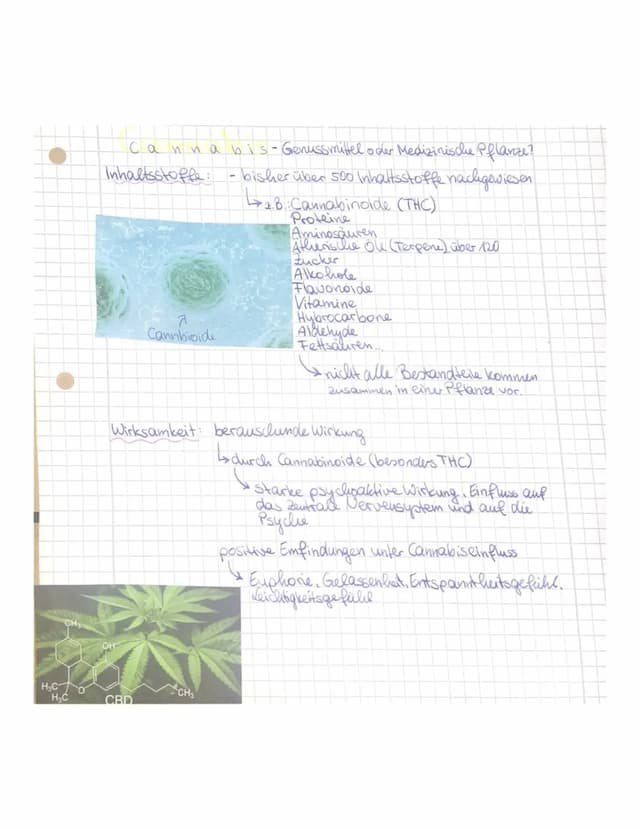 Cannabis - Genussmittel oder Medizinische Pflanze?
Inhaltsstoffe: - bisher über 500 Inhaltsstoffe nachgewiesen
↳ z.B. Cannabinoide (THC)
Proteine
Aminosäuren
Ätherische Öle (Terpene) über 120
Zucker
Alkohole
Flavonoide
Vitamine
Hybrocarbone
Aldehyde
Fettsäuren...
Cannbioide
↳ nicht alle Bestandteile kommen
zusammen in einer Pflanze vor.
Wirksamkeit: berauschende Wirkung
↳ durch Cannabinoide (besonders THC)
↳ starke psychoaktive Wirkung, Einfluss auf
das zentrale Nervensystem und auf die
Psyche
positive Emfindungen unter Cannabiseinfluss
↳ Euphorie, Gelassenheit, Entspanntheitsgefühl,
Leichtigkeitsgefühl
CH₃
OH
H₃C
H₃C
O
CH₃
CBD